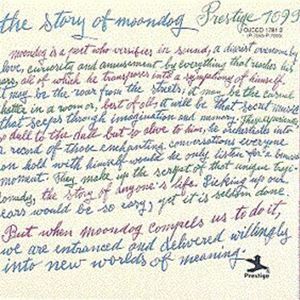 the story of moondog Prestige 7099
OJCCD-1741-2
(P-7099)
moondog is a poet who versifies in sound, a diarist overcome by
love, curiosity and amusement by everything that reaches his
ears all of which he transposes into a symphony of himself.
it may be the roar from the streets; it may be the casual
chatter in a room or, best of all, it will be that secret music
that seeps through imagination and memory. These experiences,
so dull to the dull but so alive to him, he orchestrates into
a record of those enchanting conversations everyone
on hold with himself would he only listen for a
moment. They make up the script of that unique
the story of anyone's life. Picking up our
ears would be so easy; yet it is seldom done.
But when moondog compels us to do it,
we are entranced and delivered willingly
into new worlds of meaning.
Prestige